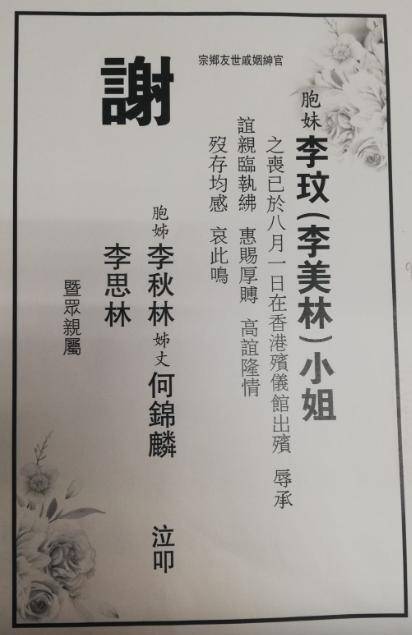 胞妹李玟（李美林）小姐
之喪已於八月一日在香港殯儀館出殯 辱承
官紳姻戚世友鄉宗
誼親臨執紼 惠賜厚賻 高誼隆情
歿存均感 哀此鳴
謝
胞姊李秋林姊丈何錦麟 泣叩
李思林
暨眾親屬